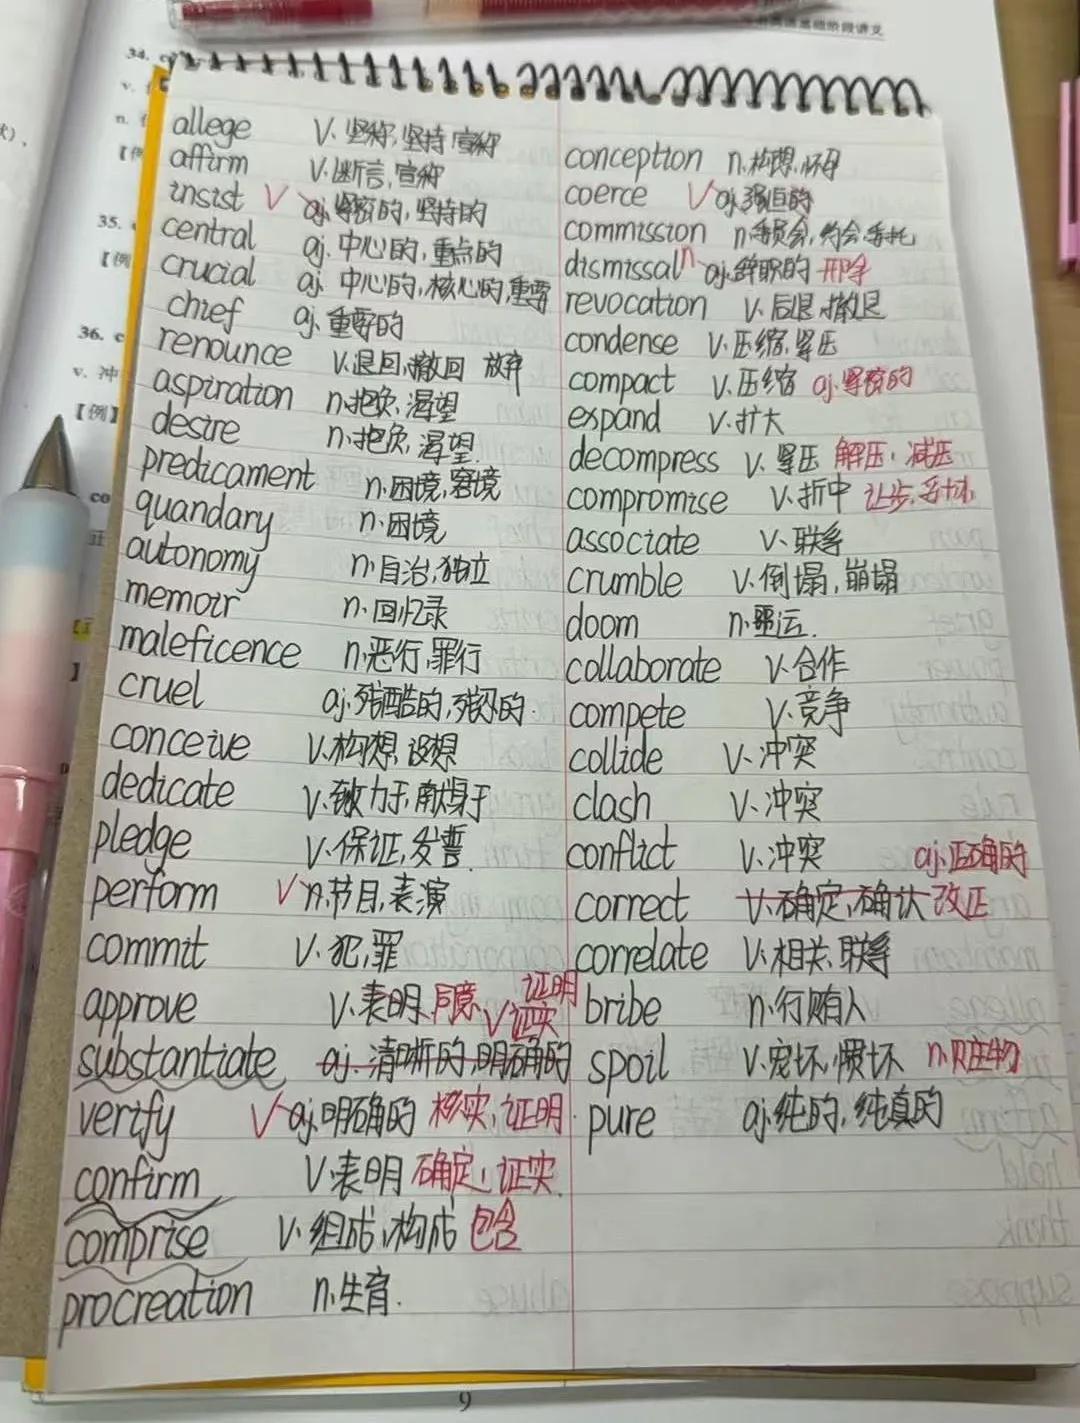 语基础阶段讲义
34. c
v.
n.
【例
35.
【例
36. c
v. 冲
【例】
co
allege v. 坚称, 坚持 宣称
affirm v. 断言, 宣称
insist v aj. 坚密的, 坚持的
central aj. 中心的, 重点的
crucial aj. 中心的, 核心的, 重要
chief aj. 重要的
renounce v. 退回, 撤回 放弃
aspiration n. 抱负, 渴望
desire n. 抱负, 渴望.
predicament n. 困境, 窘境
quandary n. 困境
autonomy n. 自治, 独立
memoir n. 回忆录
maleficence n. 恶行, 罪行
cruel aj. 残酷的, 残忍的.
conceive v. 构想, 设想
dedicate v. 致力于, 献身于
pledge v. 保证, 发誓
perform v n. 节目, 表演
commit v. 犯, 罪
approve v. 表明 同意, 证明
substantiate aj. 清晰的, 明确的 v 证实
verify v aj. 明确的 核实, 证明.
confirm v. 表明 确定, 证实.
comprise v. 组成, 构成 包含
procreation n. 生育.
conception n. 构想, 怀孕
coerce v aj. 强迫的
commission n. 委员会, 约会, 委托
dismissal n aj. 辞职的 开除
revocation v. 后退, 撤退
condense v. 压缩, 紧压
compact v. 压缩 aj. 紧密的
expand v. 扩大
decompress v. 紧压 解压, 减压
compromise v. 折中 让步, 妥协,
associate v. 联系
crumble v. 倒塌, 崩塌
doom n. 噩运.
collaborate v. 合作
compete v. 竞争
collide v. 冲突
clash v. 冲突
conflict v. 冲突
correct v. 确定, 确认 改正 aj. 正确的
correlate v. 相关, 联系
bribe n. 行贿人
spoil v. 宠坏, 惯坏 n. 战
pure aj. 纯的, 纯真的
9